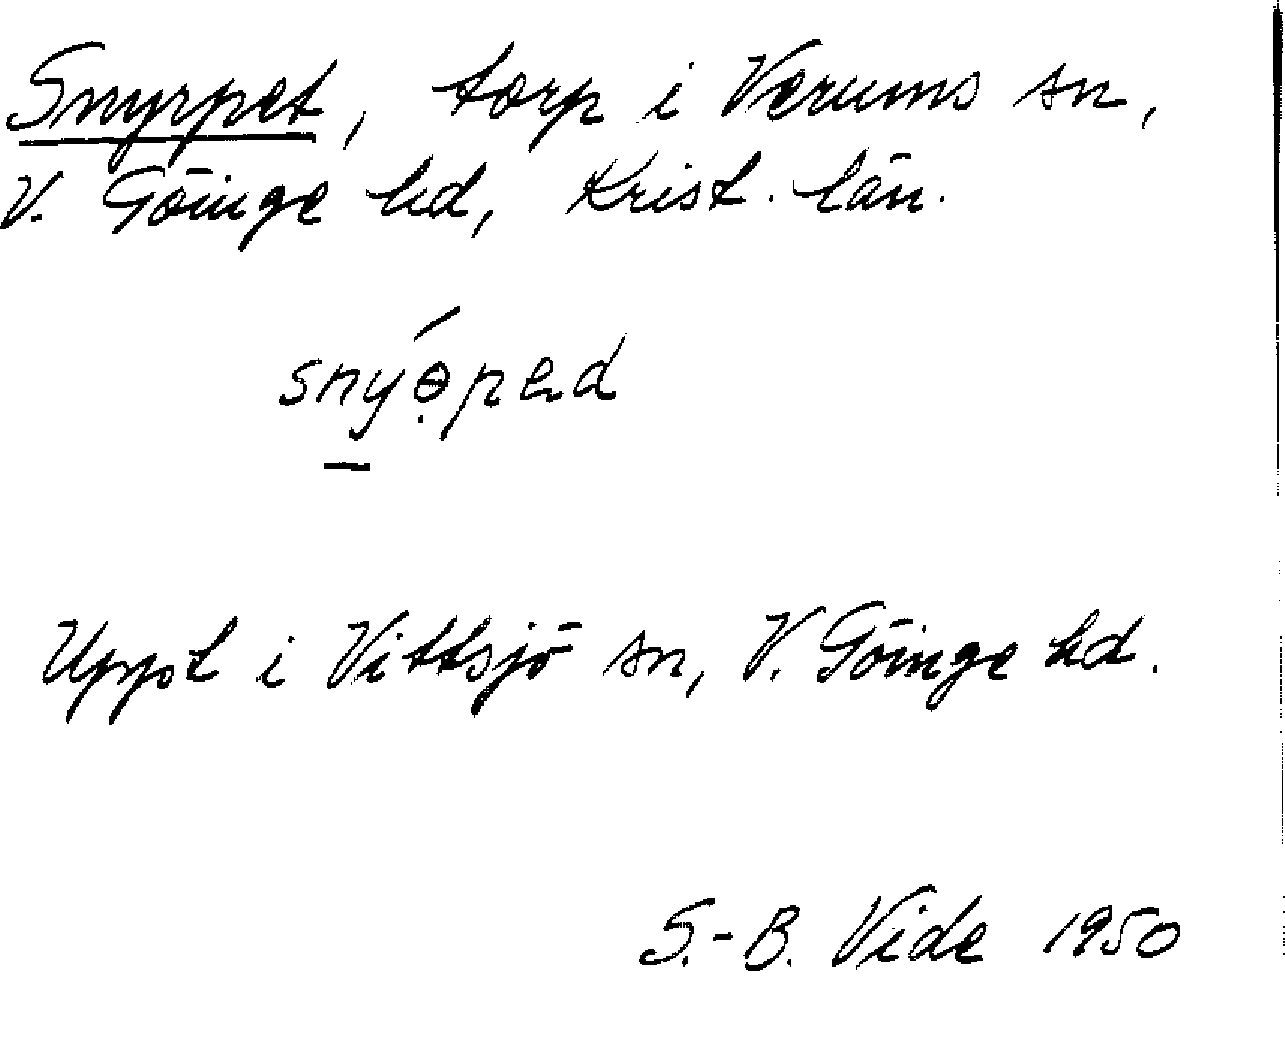 Snyrpet, torp i Verums sn,
V. Göinge hd, Krist. län.
snýɵ̣́pad
Uppt i Vittsjö sn, V. Göinge hd.
S.-B. Vide 1950